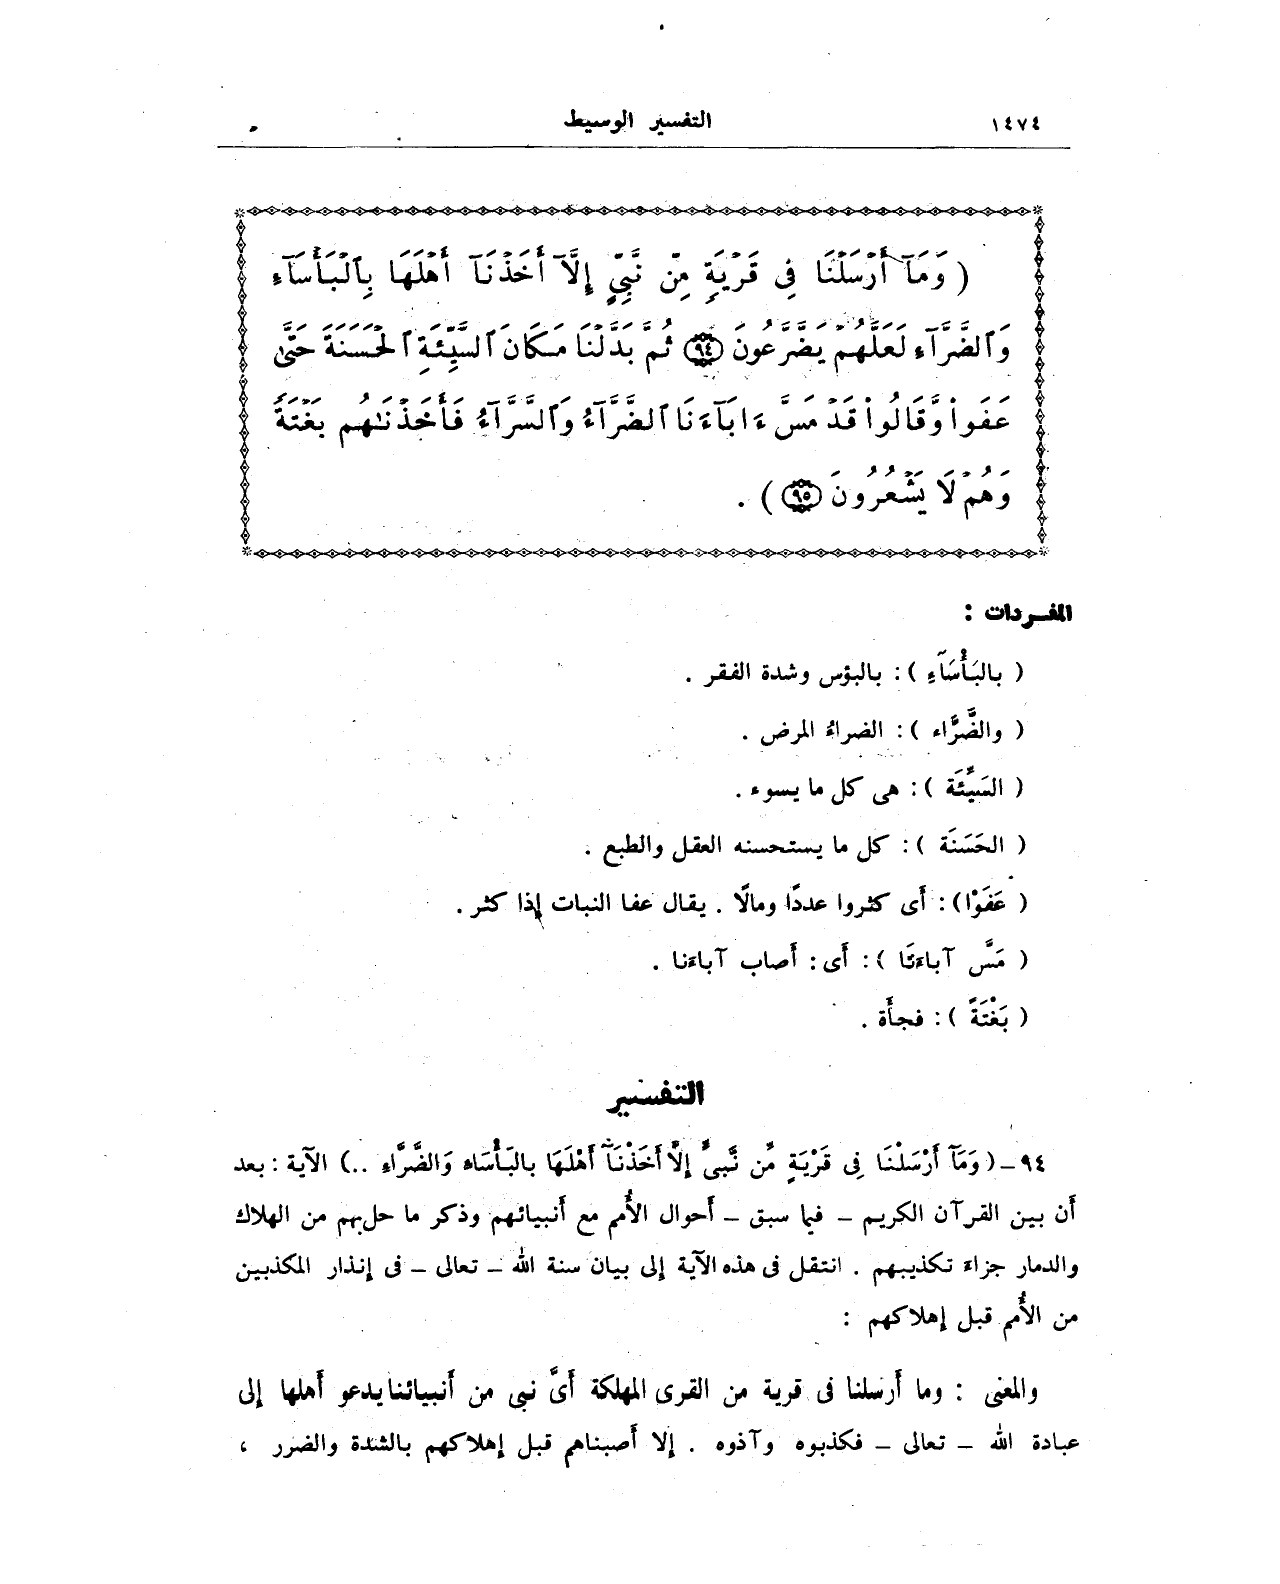 ١٤٧٤ التفسير الوسيط
( وَمَآ أَرْسَلْنَا فِى قَرْيَةٍ مِّن نَّبِىٍّ إِلَّآ أَخَذْنَآ أَهْلَهَا بِٱلْبَأْسَآءِ
وَٱلضَّرَّآءِ لَعَلَّهُمْ يَضَّرَّعُونَ ﴿٩٤﴾ ثُمَّ بَدَّلْنَا مَكَانَ ٱلسَّيِّئَةِ ٱلْحَسَنَةَ حَتَّىٰ
عَفَوا۟ وَّقَالُوا۟ قَدْ مَسَّ ءَابَآءَنَا ٱلضَّرَّآءُ وَٱلسَّرَّآءُ فَأَخَذْنَٰهُم بَغْتَةً
وَهُمْ لَا يَشْعُرُونَ ﴿٩٥﴾ ) .
المفردات :
( بالبَأْسَآءِ ) : بالبؤس وشدة الفقر .
( والضَّرَّاء ) : الضراءُ المرض .
( السَيِّئَة ) : هى كل ما يسوء .
( الحَسَنَة ) : كل ما يستحسنه العقل والطبع .
( عَفَوْا ) : أى كثروا عددًا ومالًا . يقال عفا النبات إذا كثر .
( مَسَّ آباءَنَا ) : أى : أصاب آباءَنا .
( بَغْتَةً ) : فجأة .
التفسير
٩٤ – ( وَمَآ أَرْسَلْنَا فِى قَرْيَةٍ مِّن نَّبىٍّ إِلَّا أَخَذْنَآ أَهْلَهَا بالبَأْسَاءِ وَالضَّرَّاءِ ..) الآية : بعد
أن بين القرآن الكريم – فيما سبق – أحوال الأُمم مع أنبيائهم وذكر ما حل بهم من الهلاك
والدمار جزاءَ تكذيبهم . انتقل فى هذه الآية إلى بيان سنة الله – تعالى – فى إنذار المكذبين
من الأُمم قبل إهلاكهم :
والمعنى : وما أرسلنا فى قرية من القرى المهلكة أىَّ نبى من أنبيائنا يدعو أهلها إلى
عبادة الله – تعالى – فكذبوه وآذوه . إلا أصبناهم قبل إهلاكهم بالشدة والضرر ،